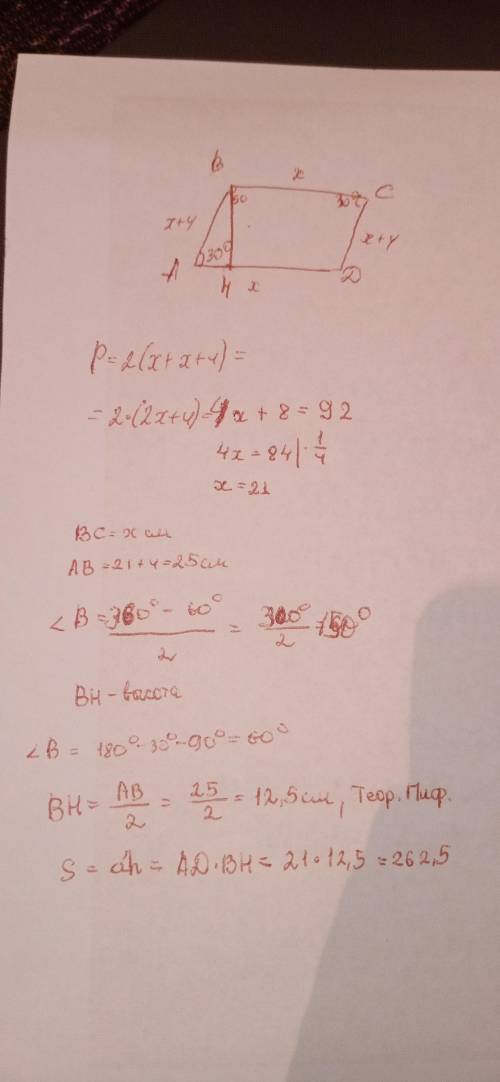 B
x
C
60
30°
x+4
x+4
30°
A
H
x
D
P=2(x+x+4)=
=2·(2x+4)=4x+8=92
4x=84|·1/4
x=21
BC=x см
AB=21+4=25см
∠B=(360°-60°)/2=300°/2=150°
BH-высота
∠B=180°-30°-90°=60°
BH=AB/2=25/2=12,5см, Теор. Пиф.
S=ah=AD·BH=21·12,5=262,5